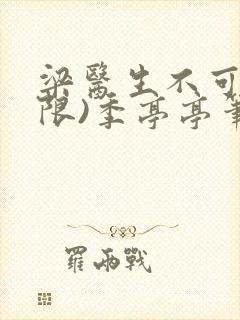 梁醫生不可
限)季亭亭
羅雨戰